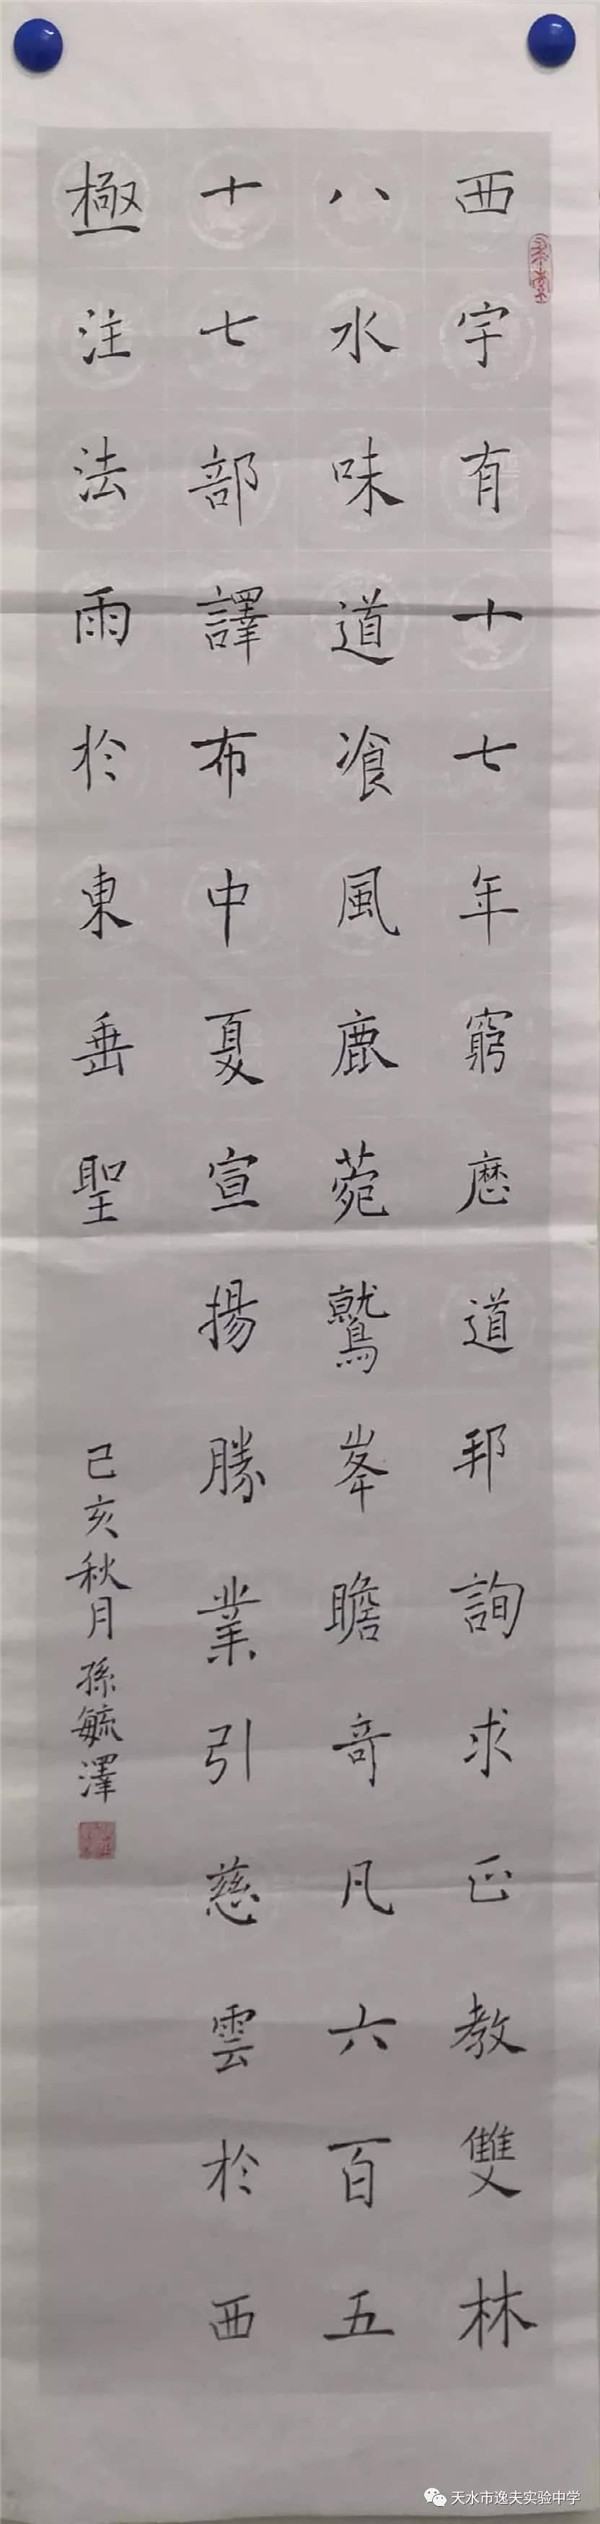 西宇有十七年窮歷道邦詢求正教雙林
八水味道飡風鹿菀鷲峯瞻奇凡六百五
十七部譯布中夏宣揚勝業引慈雲於西
極注法雨於東垂聖
己亥秋月孫毓澤
天水市逸夫实验中学